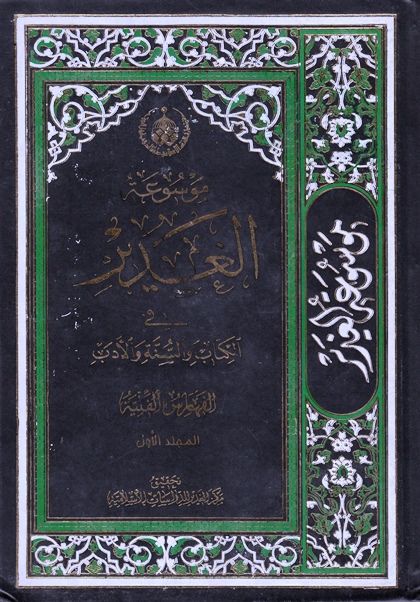 موسوعة
الغدير
في
الكتاب والسنة والأدب
الفهارس الفنية
المجلد الأول
تحقيق
مركز الغدير للدراسات الإسلامية
موسوعة الغدير